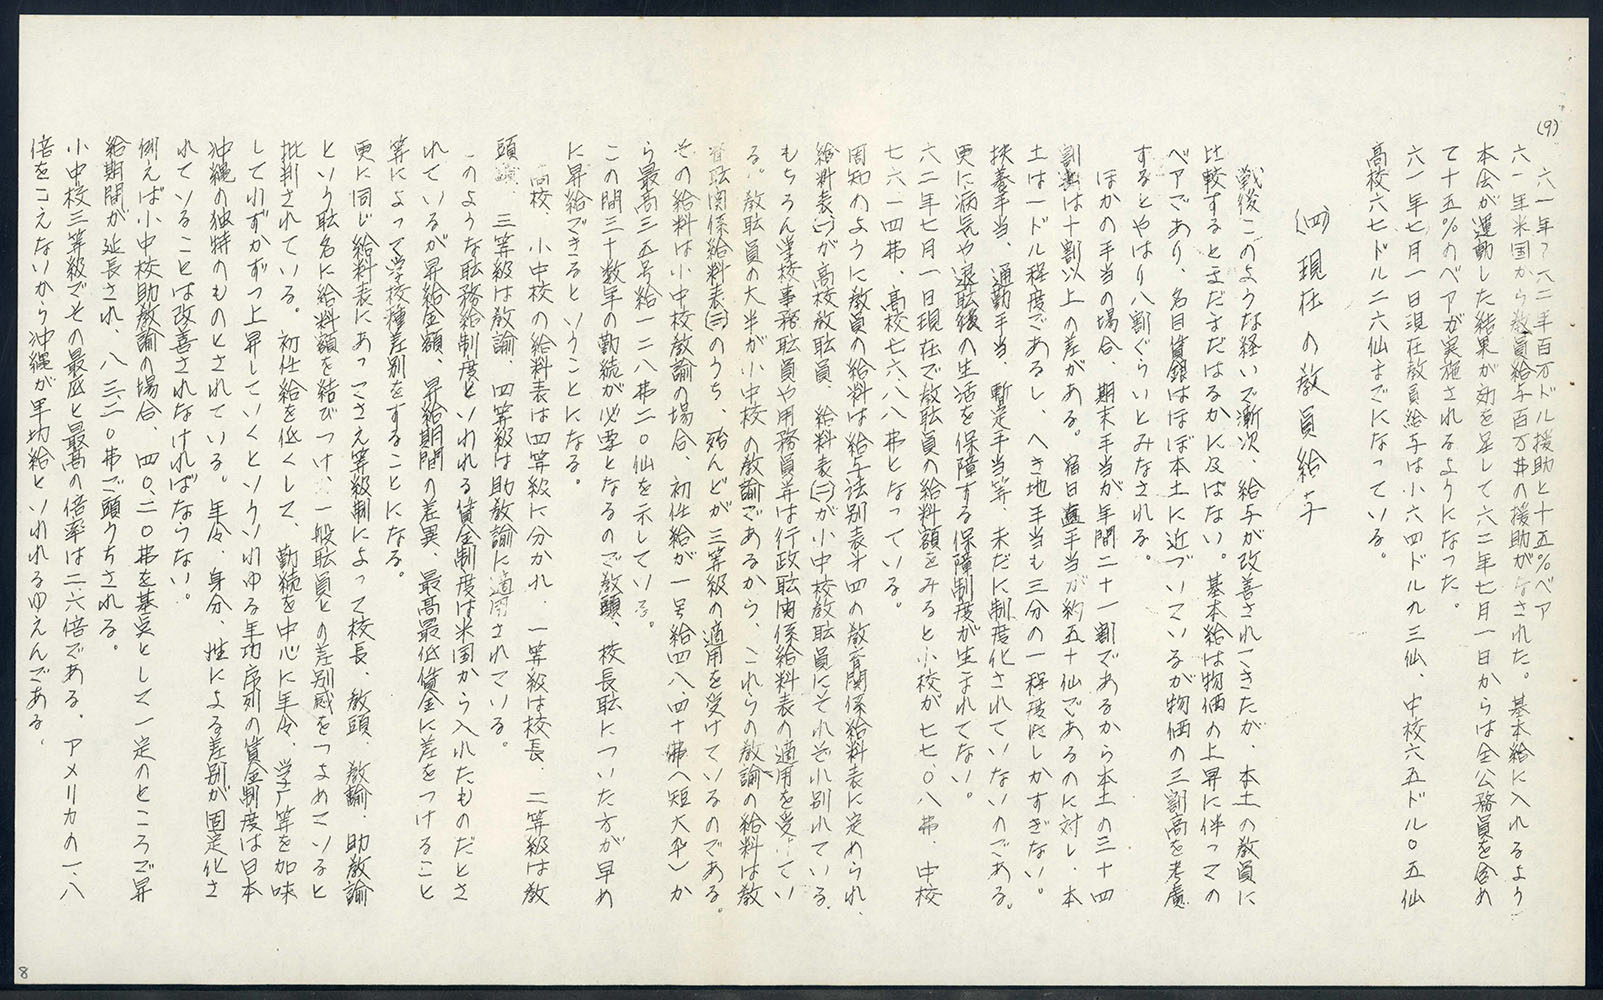 (9) 六一年〜六二年百万ドル援助と十五%ベア
六一年米国から教員給与百万弗の援助がなされた。基本給に入れるよう
本会が運動した結果が効を呈して六二年七月一日からは全公務員を含め
て十五%のベアが実施されるようになった。
六一年七月一日現在教員給与は小六四ドル九三仙、中校六五ドル〇五仙
高校六七ドル二六仙までになっている。
(四) 現在の教員給与
戦後このような経いで漸次、給与が改善されてきたが、本土の教員に
比較するとまだまだはるかに及ばない。基本給は物価の上昇に伴っての
ベアであり、名目賃銀はほぼ本土に近づいているが物価の三割高を考慮
するとやはり八割ぐらいとみなされる。
ほかの手当の場合、期末手当が年間二十一割であるから本土の三十四
割は十割以上の差がある。宿日直手当が約五十仙であるのに対し、本
土は一ドル程度であるし、へき地手当も三分の一程度にしかすぎない。
扶養手当、通勤手当、暫定手当等、未だに制度化されていないのである。
更に病気や退職後の生活を保障する保障制度が生まれてない。
六二年七月一日現在で教職員の給料額をみると小校が七七・〇八弗、中校
七六・一四弗、高校七六・八八弗となっている。
周知のように教員の給料は給与法別表第四の教育関係給料表に定められ、
給料表(一)が高校教職員、給料表(二)が小中校教職員にそれぞれ別れている。
もちろん学校事務職員や用務員等は行政職関係給料表の適用を受けてい
る。教職員の大半が小中校の教諭であるから、これらの教諭の給料は教
育職関係給料表(二)のうち、殆んどが三等級の適用を受けているのである。
その給料は小中校教諭の場合、初任給が一号給四八・四十弗(短大卒)か
ら最高三五号給一二八弗二〇仙を示している。
この間三十数年の勤続が必要となるので教頭、校長職についた方が早め
に昇給できるということになる。
高校、小中校の給料表は四等級に分かれ、一等級は校長、二等級は教
頭、三等級は教諭、四等級は助教諭に適用されている。
このような職務給制度といわれる賃金制度は米国から入れたものだとさ
れているが昇給金額、昇給期間の差異、最高最低賃金に差をつけること
等によって学校種差別をすることになる。
更に同じ給料表にあってさえ等級制によって校長、教頭、教諭、助教諭
という職名に給料額を結びつけ、一般職員との差別感をつよめていると
批判されている。初任給を低くして、勤続を中心に年令、学歴等を加味
して小ずかずつ上昇していくというやいわゆる年功序列の賃金制度は日本
沖縄の独特のものとされている。年令、身分、性による差別が固定化さ
れていることは改善されなければならない。
例えば小中校助教諭の場合、四〇・二〇弗を基点として一定のところで昇
給期間が延長され、八三・二〇弗で頭うちされる。
小中校三等級でその最低と最高の倍率は二・六倍である。アメリカの一・八
倍をこえないから沖縄が年功給といわれるゆえんである。
8